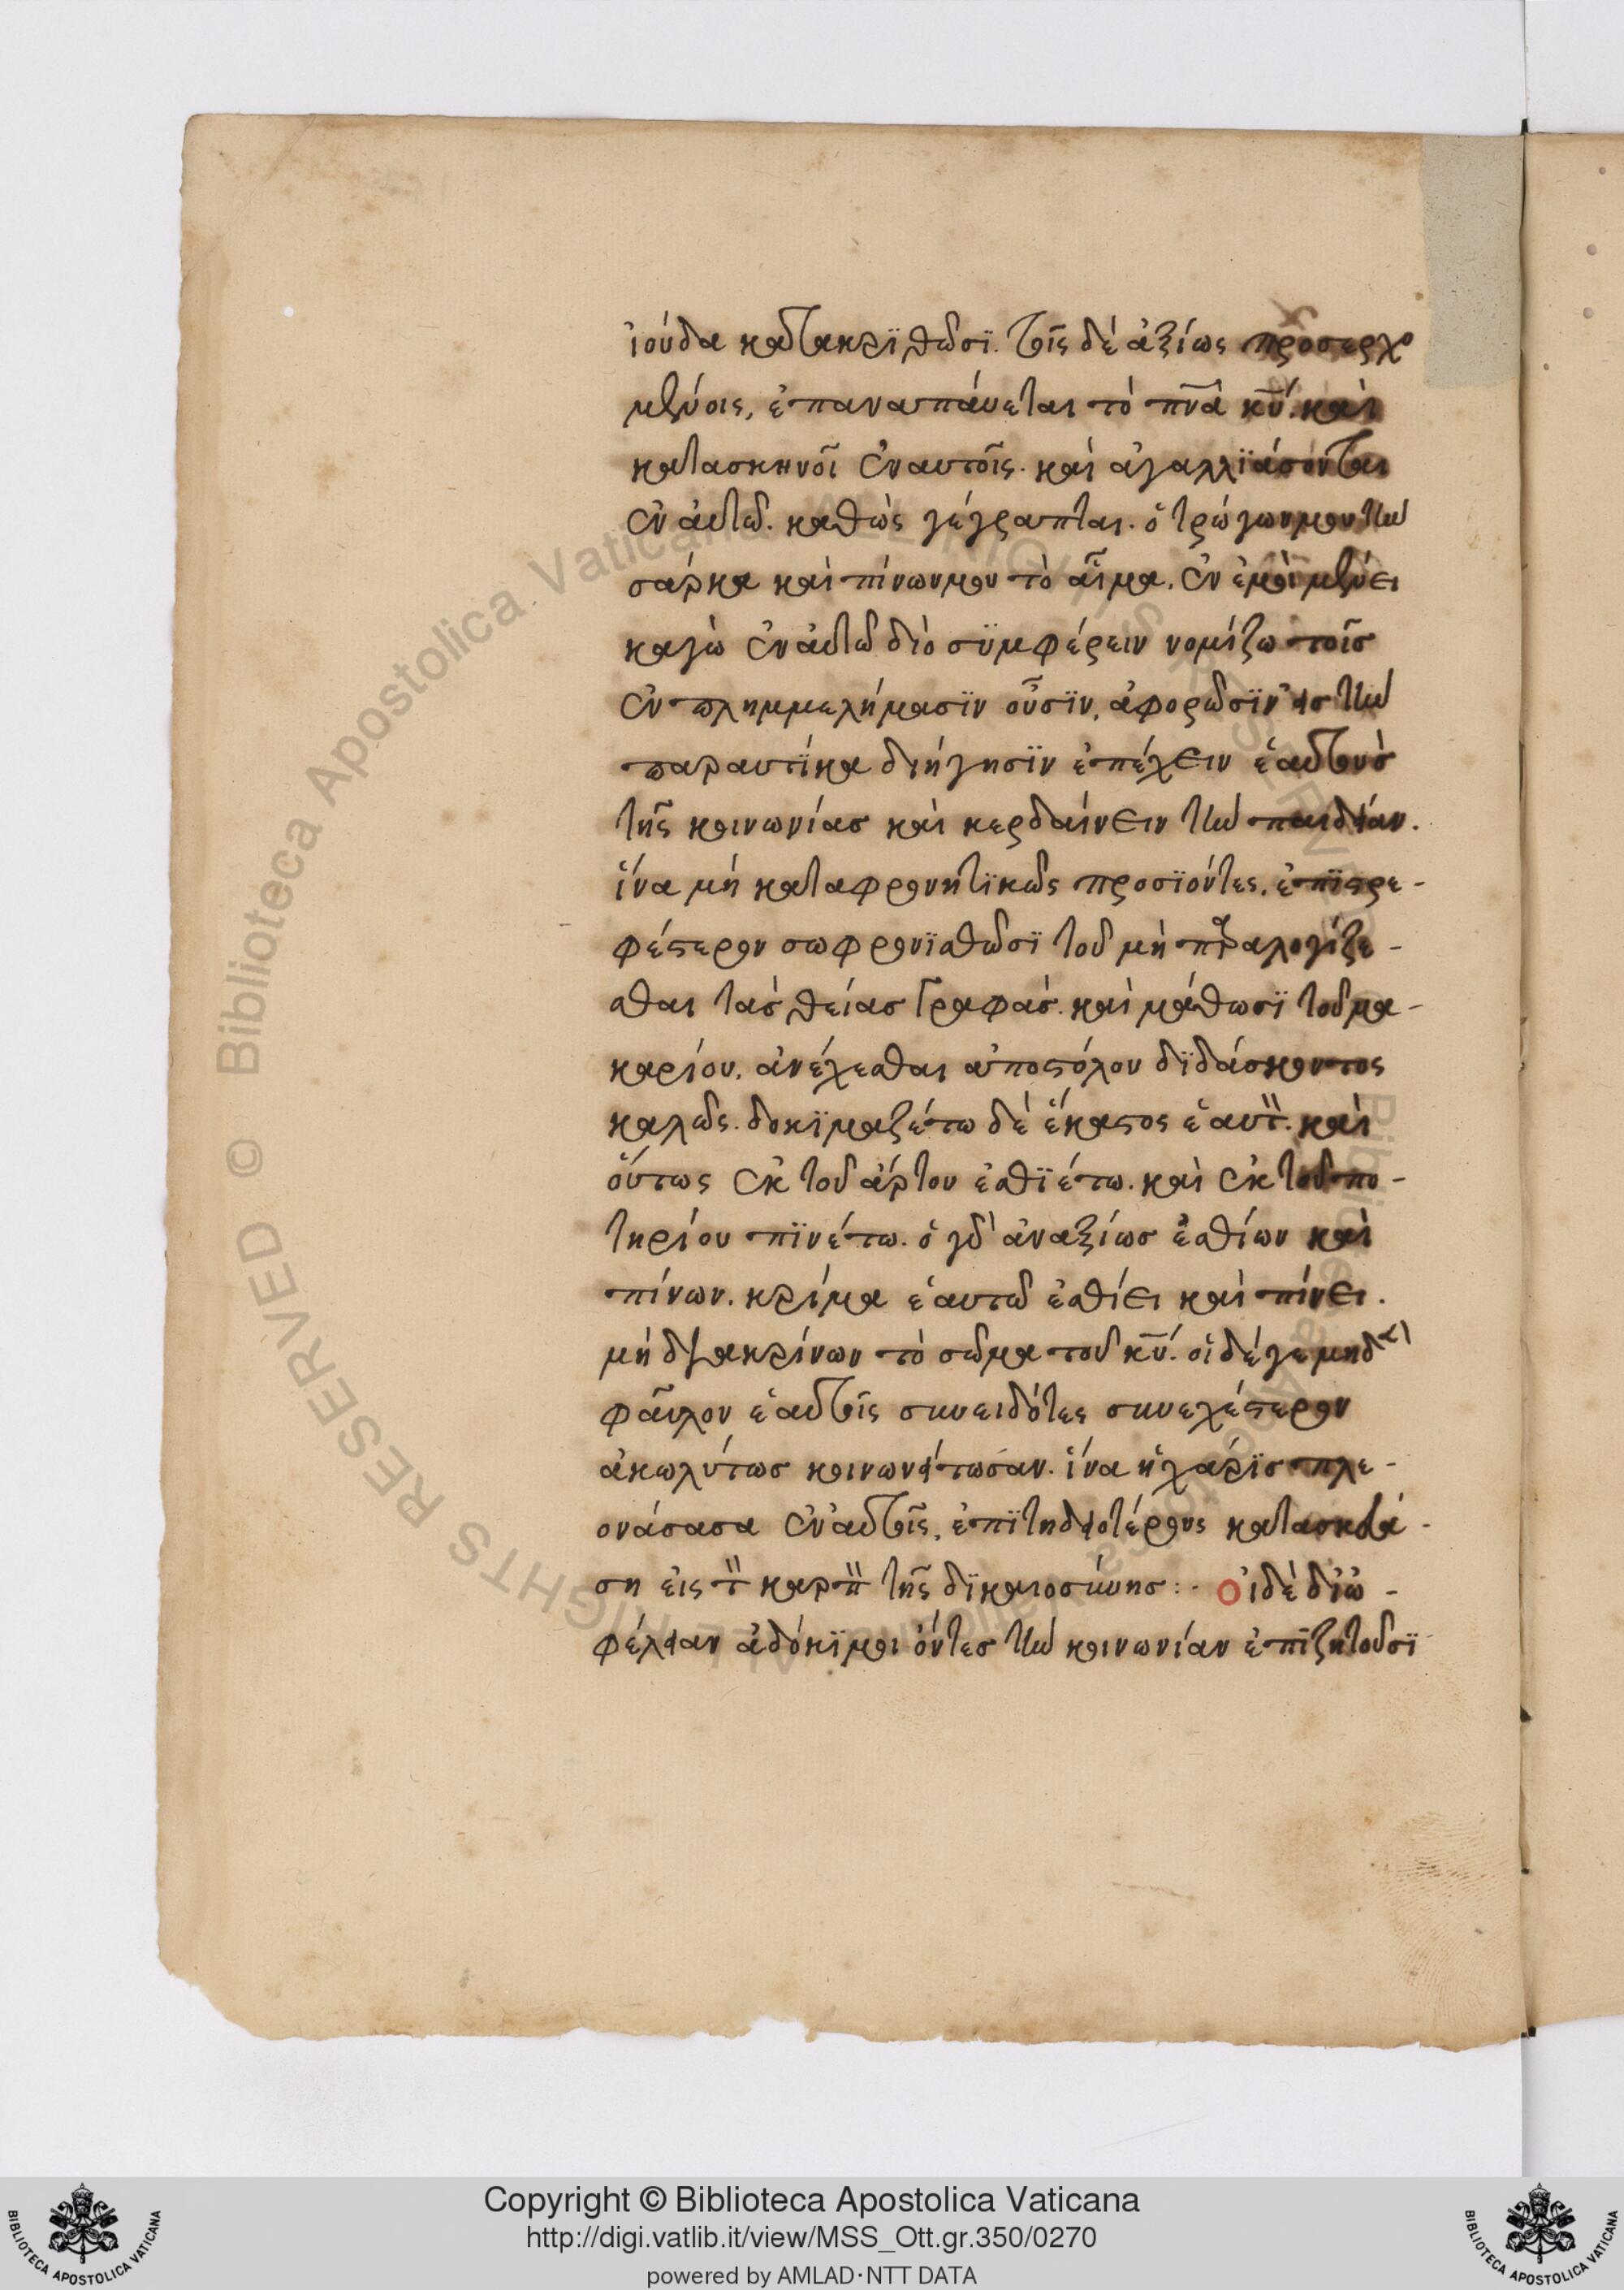 ἰούδα κατακριθῶσϊ. τοῖς δὲ ἀξίως προσερχο
μένοις, ἐπαναπάυεται τὸ πν̅α κυ̅. καὶ
κατασκηνοῖ ἐν αυτοῖς. καὶ ἀγαλλϊάσονται
ἐν αὐτῶ. καθὼς γέγραπται. ὁ τρώγων μου τὴν
σάρκα καὶ πίνων μου τὸ αἷμα, ἐν ἐμοὶ μένει
καγὼ ἐν αὐτῶ διὸ σϋμφέρειν νομίζω τοῖς
ἐν πλημμελήμασϊν οὖσϊν, ἀφορῶσϊν εἰς τὴν
παραυτΐκα διήγησϊν ἐπέχειν ἑαυτοὺς
τῆς κοινωνίας καὶ κερδαίνειν τὴν παιδείαν.
ἵνα μὴ καταφρονητϊκῶς προσϊόντες, ἐπϊστρε-
φέστερον σωφρονϊσθῶσϊ τοῦ μὴ παραλογίζε-
σθαι τὰς θείας Γραφάς. καὶ μάθωσϊ τοῦ μα-
καρίου, ἀνέχεσθαι ἀποστόλου δϊδάσκοντος
καλῶς. δοκϊμαζέτω δὲ ἕκαστος ἑαυτὸν. καὶ
ὅυτως ἐκ τοῦ ἄρτου ἐσθϊέτω. καὶ ἐκ τοῦ πο-
τηρίου πϊνέτω. ὁ γὰρ ἀναξίως ἐσθίων καὶ
πίνων. κρίμα ἑαυτῶ ἐσθίει καὶ πίνει.
μὴ διακρίνων τὸ σῶμα τοῦ κυ̅. οἱ δέ γε μηδὲν
φαῦλον ἑαυτοῖς συνειδότες συνεχέστερον
ἀκωλύτως κοινωνείτωσαν. ἵνα ἡ χάρϊς πλε-
ονάσασα ἐν αὐτοῖς, ἐπϊτηδειοτέρους κατασκευά-
ση εἰς τὸν καρπὸν τῆς δϊκαιοσύνης :· οἱ δὲ δι' ὠ-
φέλειαν ἀδόκϊμοι ὄντες τὴν κοινωνίαν ἐπϊζητοῦσϊ
Copyright © Biblioteca Apostolica Vaticana
http://digi.vatlib.it/view/MSS_Ott.gr.350/0270
powered by AMLAD·NTT DATA